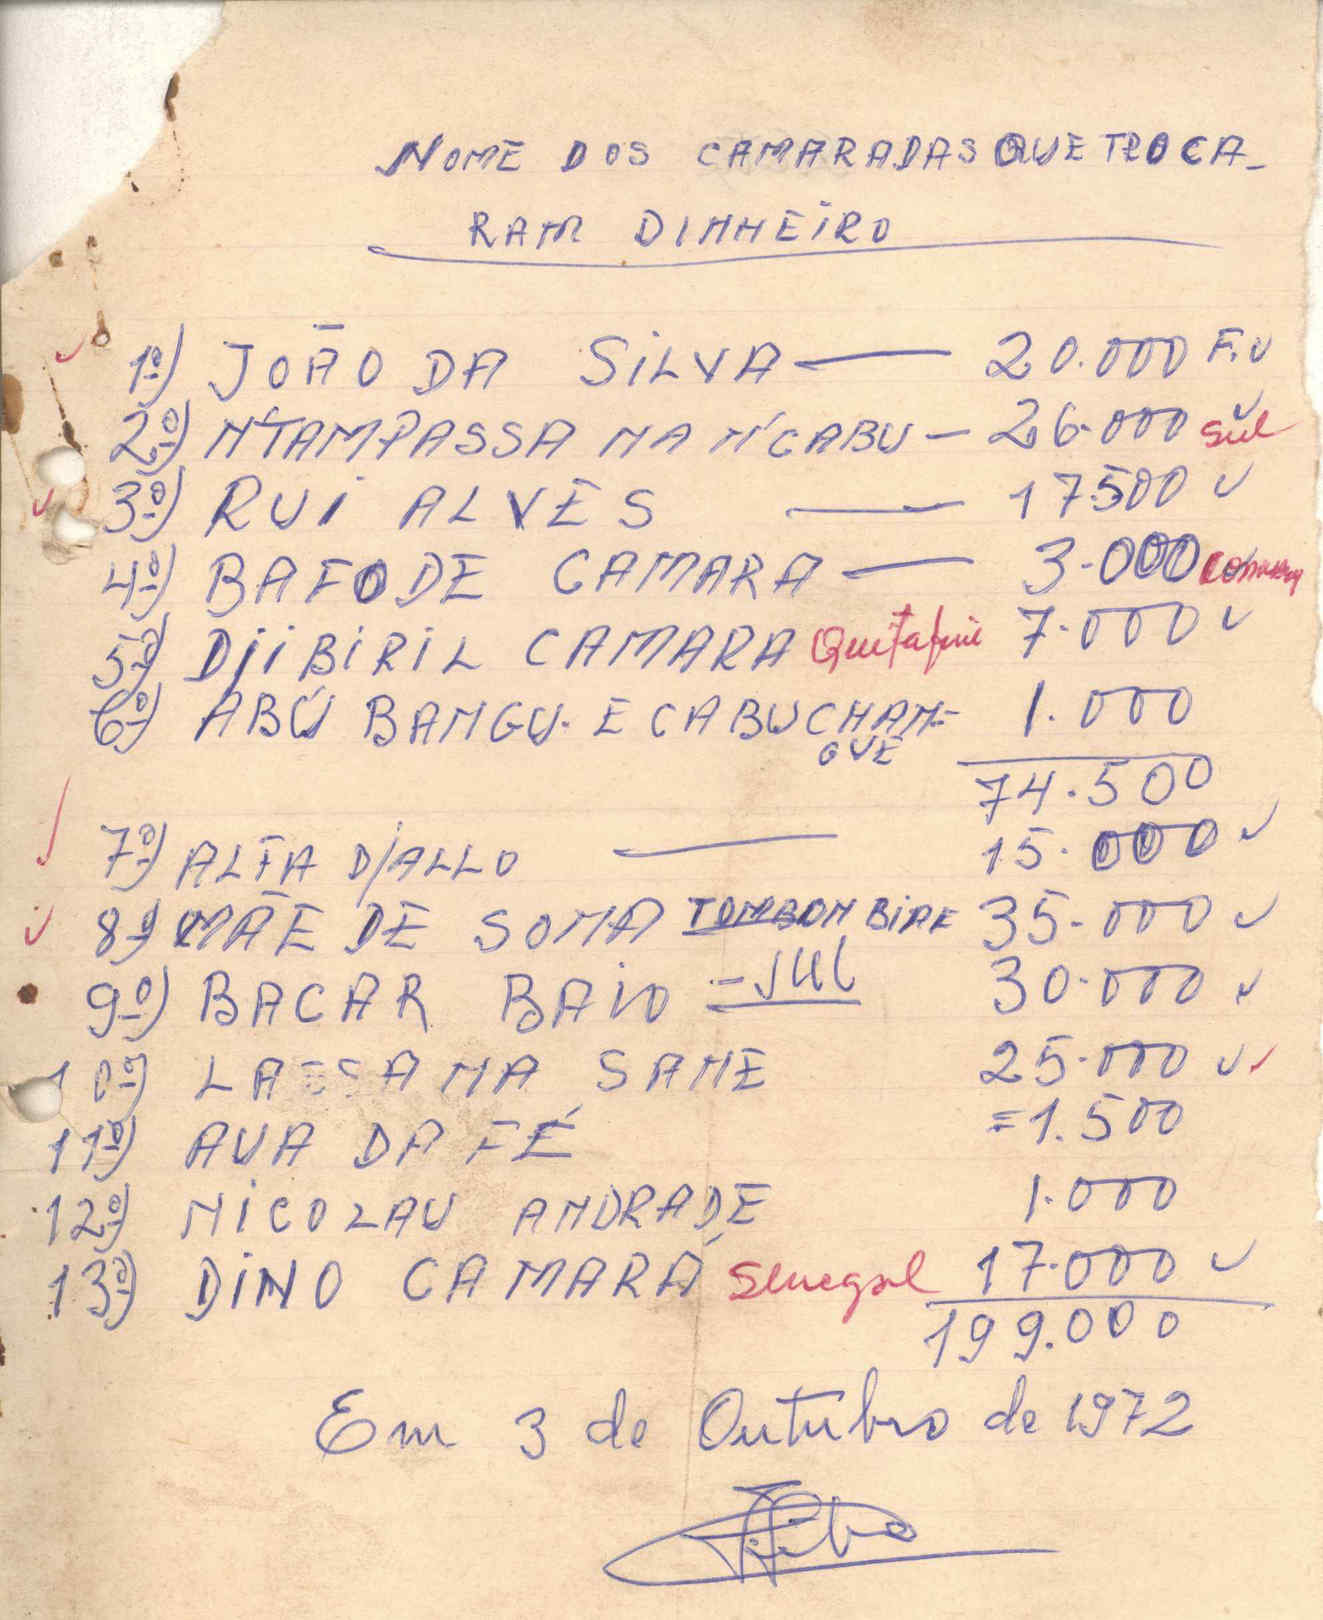 NOME DOS CAMARADAS QUE TROCA-
RAM DINHEIRO
1º) JOÃO DA SILVA — 20.000 F. v
2º) N'TAMPASSA NA N'CABU — 26.000 sul
3º) RUI ALVES — 17500
4º) BAFODE CAMARA — 3.000
5º) DJIBIRIL CAMARA Quitafine 7.000
6º) ABÚ BANGU. E CABUCHAN= 1.000
GUE
74.500
7º) ALFA DJALLO — 15.000
8º) MÃE DE SOMA TOMBOM 35.000
9º) BACAR BAIO - SUL 30.000
10º) LASSANA SANE 25.000
11º) AUA DA FÉ =1.500
12º) NICOLAU ANDRADE 1.000
13º) DINO CAMARÁ Senegal 17.000
199.000
Em 3 de Outubro de 1972